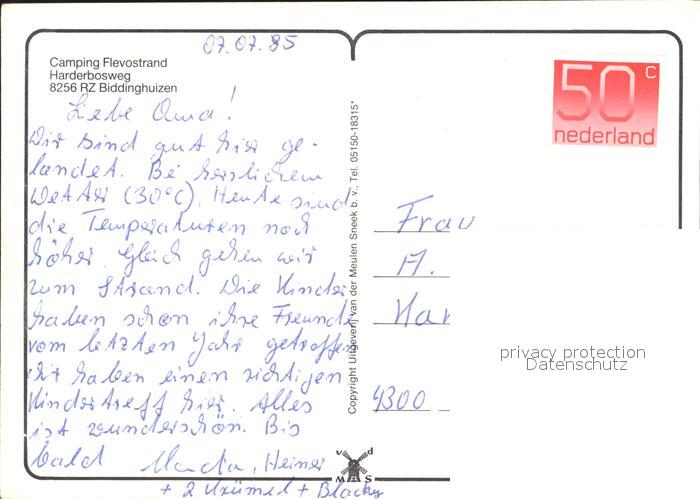 07.07.95
Camping Flevostrand
Harderbosweg
8256 RZ Biddinghuizen
Liebe Oma!
Wir sind gut hier ge-
landet. Bei herrlichem
Wetter (30°C). Heute sind
die Temperaturen noch
höher. Gleich gehen wir
zum Strand. Die Kinder
haben schon ihre Freunde
vom letzten Jahr getroffen
Wir haben einen richtigen
Kindertreff hier. Alles
ist wunderschön. Bis
bald Heiner
+ 2 Krümel + Blacky
Copyright Uitgeverij van der Meulen Sneek b.v., Tel. 05150-18315*
50 c
nederland
Frau
A.
Har
4300
privacy protection
Datenschutz
v d
MAS